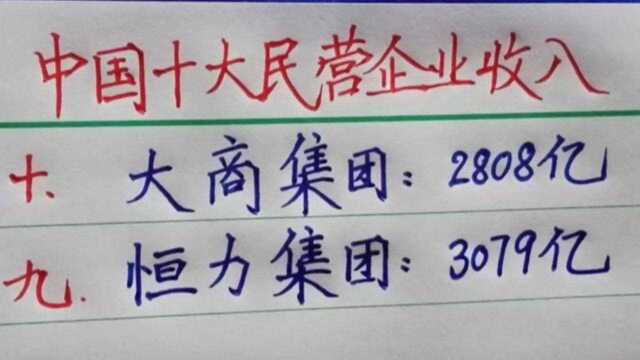 中国十大民营企业收入
十、大商集团：2808亿
九.恒力集团：3079亿